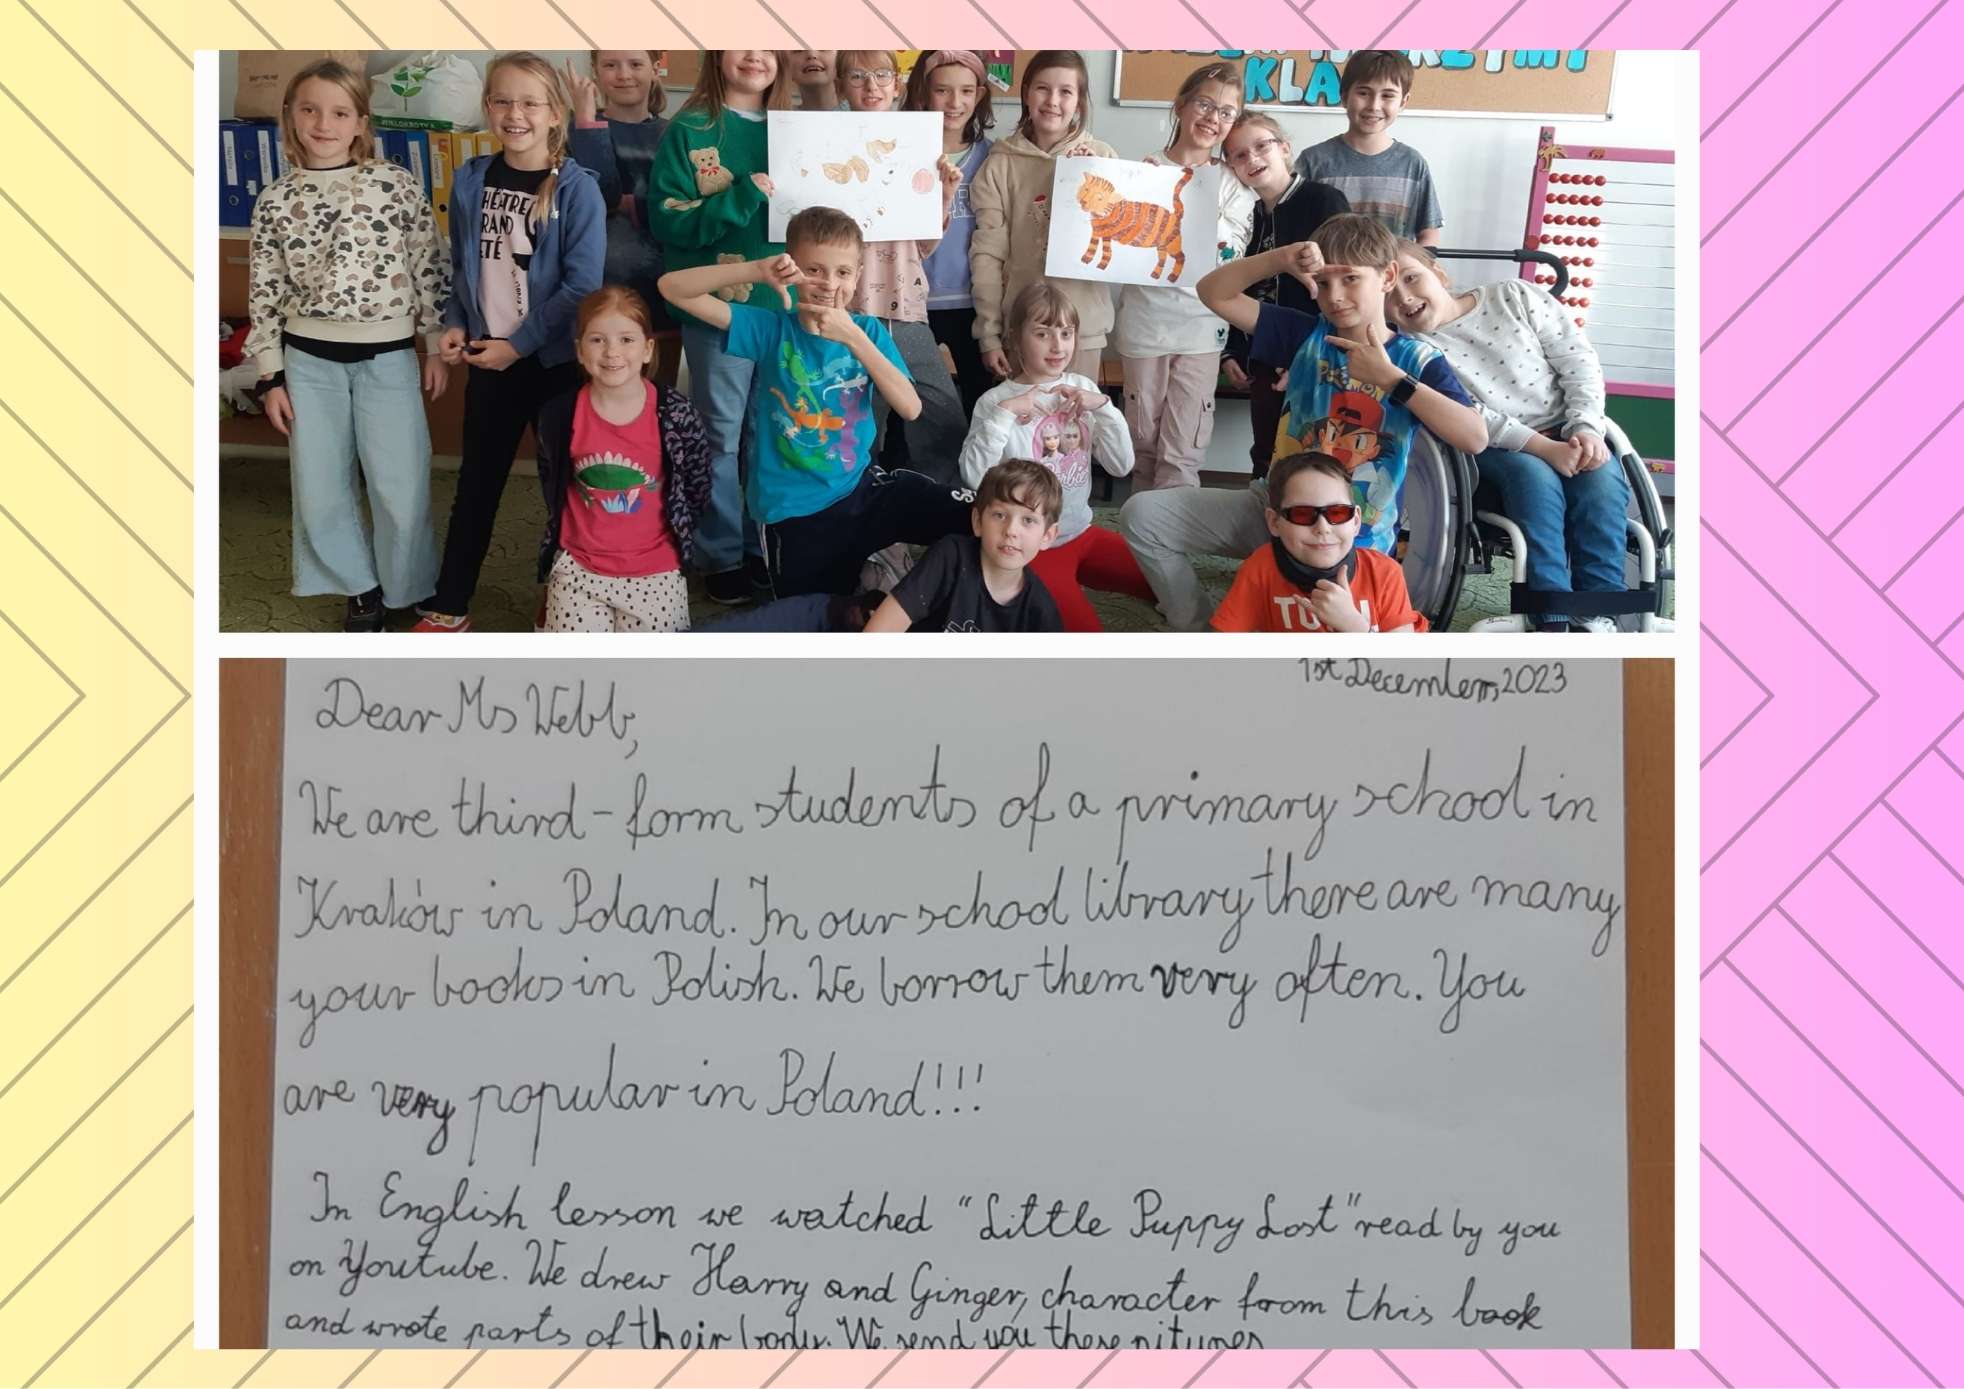 KLA
THÉÂTRE
GRAND
ÉTÉ
A
9
POKÉMON
Barbie
1st December, 2023
Dear Ms Webb,
We are third-form students of a primary school in
Kraków in Poland. In our school library there are many
your books in Polish. We borrow them very often. You
are very popular in Poland!!!
In English lesson we watched "Little Puppy Lost" read by you
on Youtube. We drew Harry and Ginger, character from this book
and wrote parts of their body. We send you these pitures